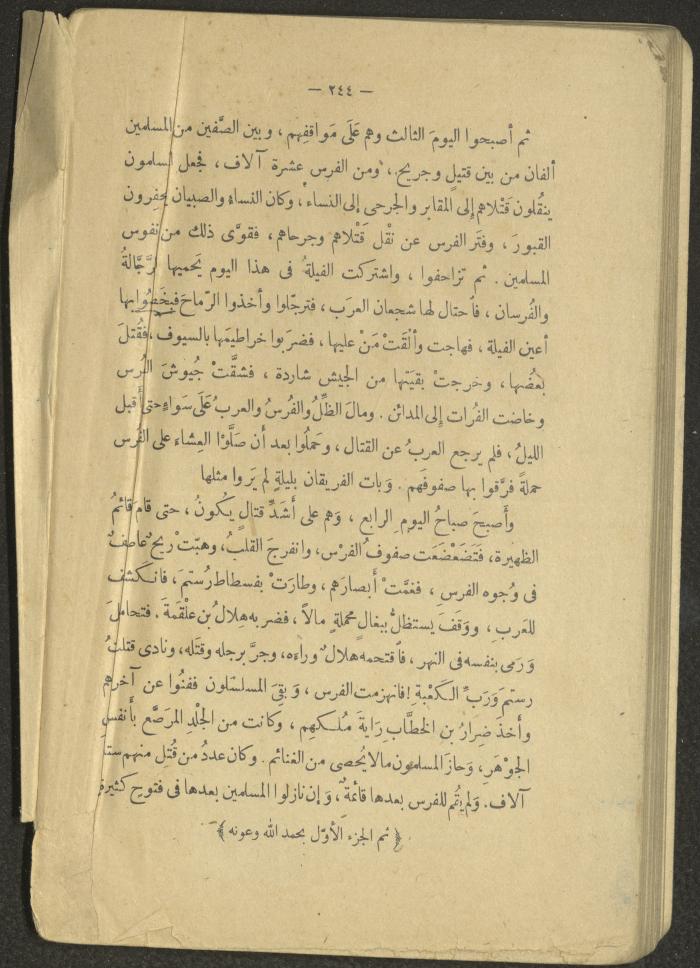 — ٢٤٤ —
ثم أصبحوا اليومَ الثالث وهم عَلَى مَواقفِهم ، وبين الصَّفين من المسلمين
ألفان من بين قتيلٍ وجريح ، ومن الفرس عشرة آلاف ، فجعل لسامون
ينقُلون قَتْلاهم إلى المقابر والجرحى إلى النساء ، وكان النساء والصبيان يحفرون
القبورَ ، وفتَر الفرس عن نقْل قَتْلاهم وجرحاهم ، فقوَّى ذلك من نفوس
المسلمين . ثم تزاحفوا ، واشتركت الفيلةُ فى هذا اليوم يَحميها الرَّجَّالةُ
والفُرسان ، فاحتال لها شجعان العرَب ، فترجّلوا وأخذوا الرّماحَ فيخَصُوا بها
أعين الفيلة ، فهاجت وألقَتْ مَنْ عليها ، فضرَبوا خراطيمَها بالسيوف ، فقُتلَ
بعضُها ، وخرجتْ بقيَتها من الجيش شاردة ، فشقَّتْ جُيوشَ الفُرس
وخاضت الفُرات إلى المدائن . ومالَ الظِّلُّ والفُرسُ والعربُ عَلَى سَواءٍ حتى أقبل
الليلُ ، فلم يرجع العربُ عن القتال ، وحَملُوا بعد أن صَلَّوْا العِشاء على الفُرس
حملةً فرَّقوا بها صفوفَهم . وَبات الفريقان بليلةٍ لم يَروا مثلها
وأَصبحَ صباحُ اليومِ الرابع ، وَهم على أَشدِّ قتالٍ يكونُ ، حتى قامَ قائمُ
الظهيرة ، فتَضَعْضَعَت صفوفُ الفرْس ، وانفرجَ القلبُ ، وهبّتْ ريحٌ عاصفٌ
فى وُجوه الفرس ، فغمَّتْ أَبصارَهم ، وطارَتْ بفسطاط رُستمَ ، فانكشف
للعَربِ ، ووَقفَ يستظلُّ ببغالٍ محملةٍ مالاً ، فضربه هِلالُ بن علْقمَةَ . فتحاملَ
وَرمى بنفسه فى النهر ، فاقتحمه هلالٌ وراءَه ، وجرَّ برجله وقتَله ، ونادى قتلتُ
رستمَ وَرَبِّ الكَعْبةِ ! فانهزمت الفرس ، وَبقِىَ المسلسَلون ففنُوا عن آخرهم
وأخذَ ضِرارُ بن الخطَّاب رَايةَ مُلكِهم ، وكانت من الجلْدِ المرَصَّع بأنفس
الجوْهَرِ ، وَحازَ المسلمون مالا يُحصى من الغنائم . وكان عددُ من قُتِل منهم ستةَ
آلاف . وَلم يقُم للفرس بعدها قائمةٌ ، وَإن نازلوا المسلمين بعدها فى فتوحٍ كثيرةٍ
﴿ تم الجزء الأوّل بحمد الله وعونه ﴾